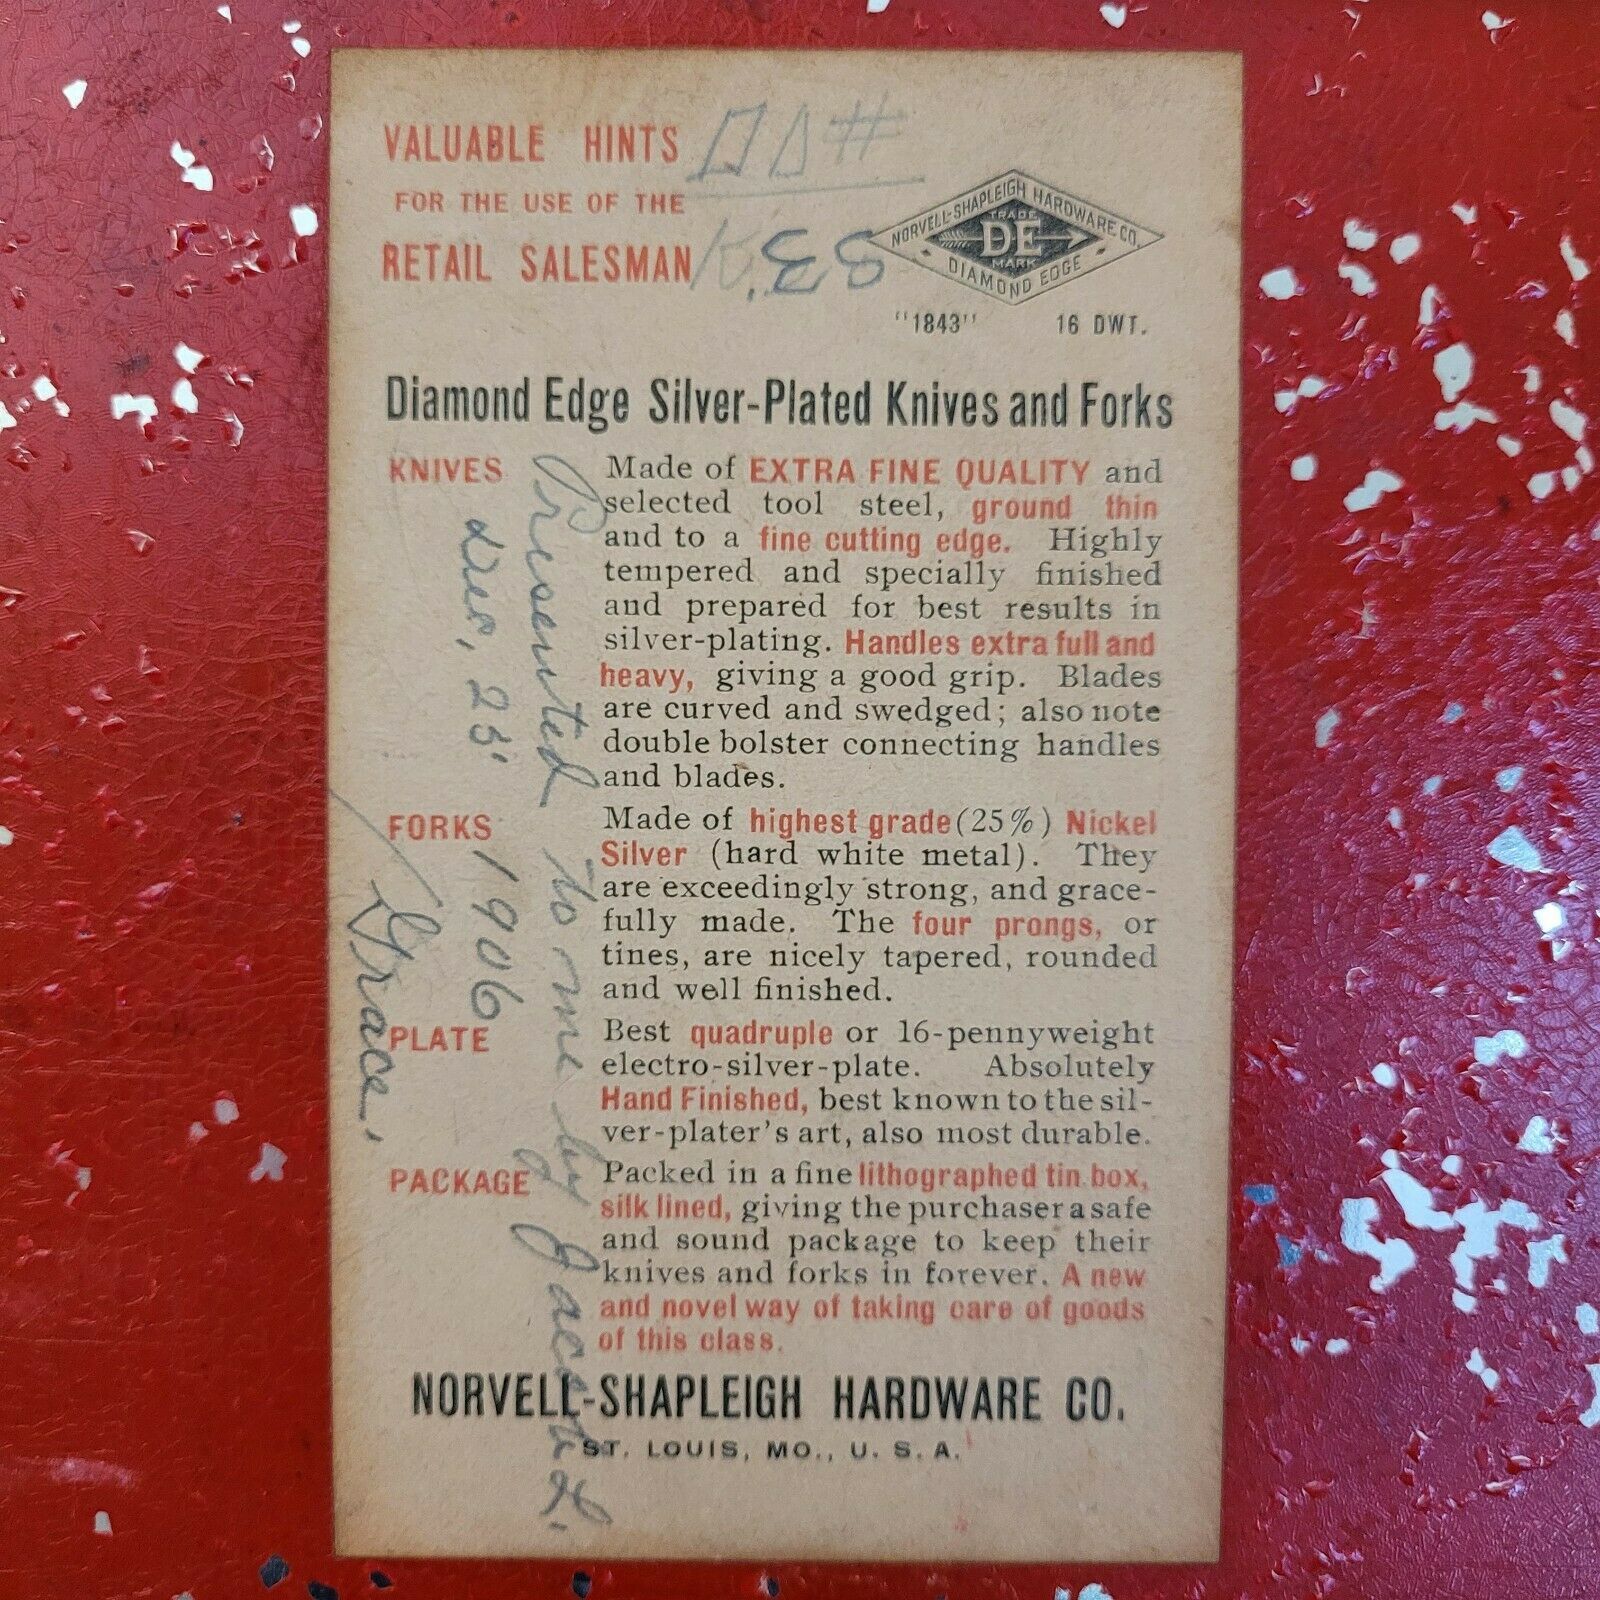 VALUABLE HINTS
FOR THE USE OF THE
RETAIL SALESMAN
NORVELL-SHAPLEIGH HARDWARE CO.
TRADE
DE
MARK
DIAMOND EDGE
"1843" 16 DWT.
Diamond Edge Silver-Plated Knives and Forks
KNIVES
Made of EXTRA FINE QUALITY and
selected tool steel, ground thin
and to a fine cutting edge. Highly
tempered and specially finished
and prepared for best results in
silver-plating. Handles extra full and
heavy, giving a good grip. Blades
are curved and swedged; also note
double bolster connecting handles
and blades.
FORKS
Made of highest grade (25%) Nickel
Silver (hard white metal). They
are exceedingly strong, and grace-
fully made. The four prongs, or
tines, are nicely tapered, rounded
and well finished.
PLATE
Best quadruple or 16-pennyweight
electro-silver-plate. Absolutely
Hand Finished, best known to the sil-
ver-plater's art, also most durable.
PACKAGE
Packed in a fine lithographed tin box,
silk lined, giving the purchaser a safe
and sound package to keep their
knives and forks in forever. A new
and novel way of taking care of goods
of this class.
NORVELL-SHAPLEIGH HARDWARE CO.
ST. LOUIS, MO., U. S. A.
Presented to me by
Dec, 25, 1906
Grace.